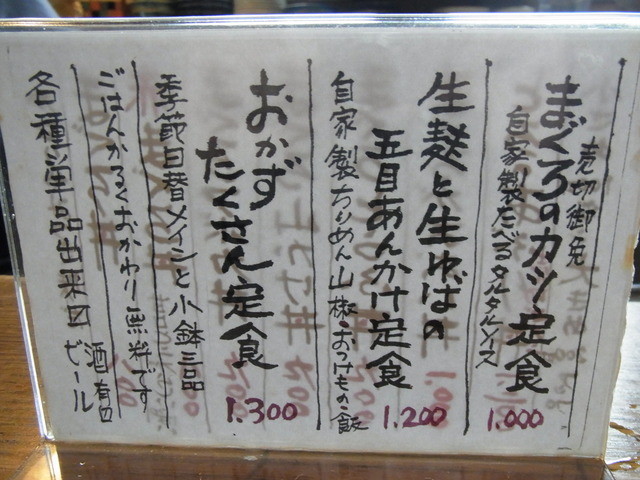 売切御免
まぐろのカツ定食
自家製たべるタルタルソース
1.000
生麸と生ゆばの
五目あんかけ定食
1.200
自家製ちりめん山椒・おつけもの・飯
おかず
たくさん定食
1.300
季節日替メインと小鉢三品
ごはんかるくおかわり無料です
各種単品出来〼
酒有〼
ビール